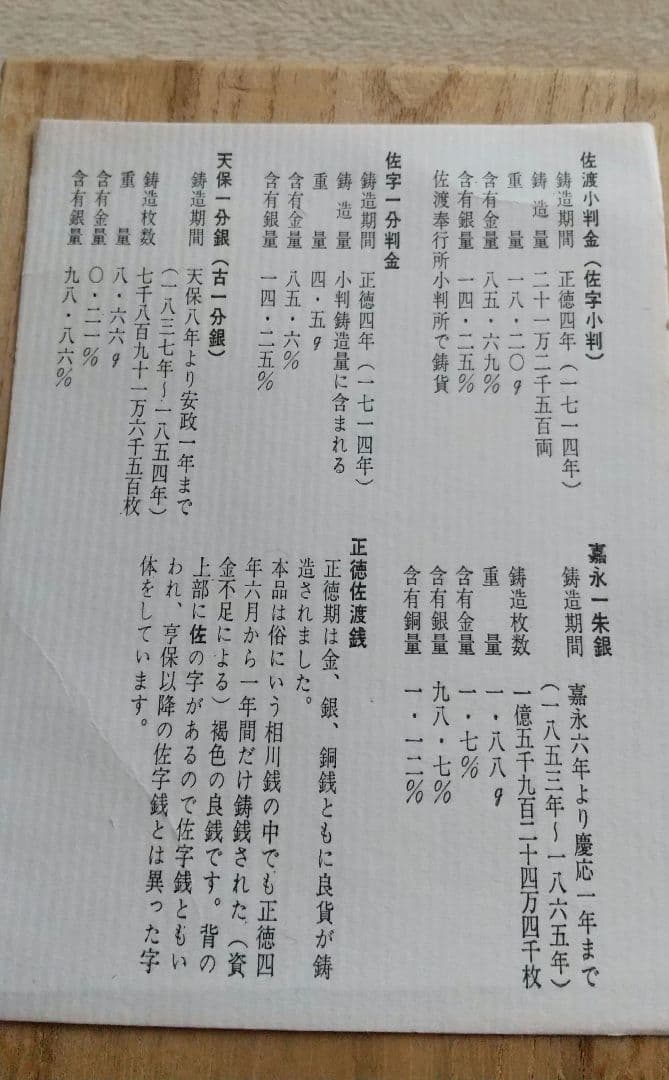 佐渡小判金（佐字小判）
鋳造期間　正徳四年（一七一四年）
鋳造量　二十一万二千五百両
重量　一八・二〇g
含有金量　八五・六九％
含有銀量　一四・二五％
佐渡奉行所小判所で鋳貨
佐字一分判金
鋳造期間　正徳四年（一七一四年）
鋳造量　小判鋳造量に含まれる
重量　四・五g
含有金量　八五・六％
含有銀量　一四・二五％
天保一分銀（古一分銀）
鋳造期間　天保八年より安政一年まで
（一八三七年〜一八五四年）
鋳造枚数　七千八百九十一万六千五百枚
重量　八・六六g
含有金量　〇・二一％
含有銀量　九八・八六％
嘉永一朱銀
鋳造期間　嘉永六年より慶応一年まで
（一八五三年〜一八六五年）
鋳造枚数　一億五千九百二十四万四千枚
重量　一・八八g
含有金量　一・七％
含有銀量　九八・七％
含有銅量　一・一二％
正徳佐渡銭
正徳期は金、銀、銅銭ともに良貨が鋳
造されました。
本品は俗にいう相川銭の中でも正徳四
年六月から一年間だけ鋳銭された（資
金不足による）褐色の良銭です。背の
上部に佐の字があるので佐字銭ともい
われ、享保以降の佐字銭とは異った字
体をしています。